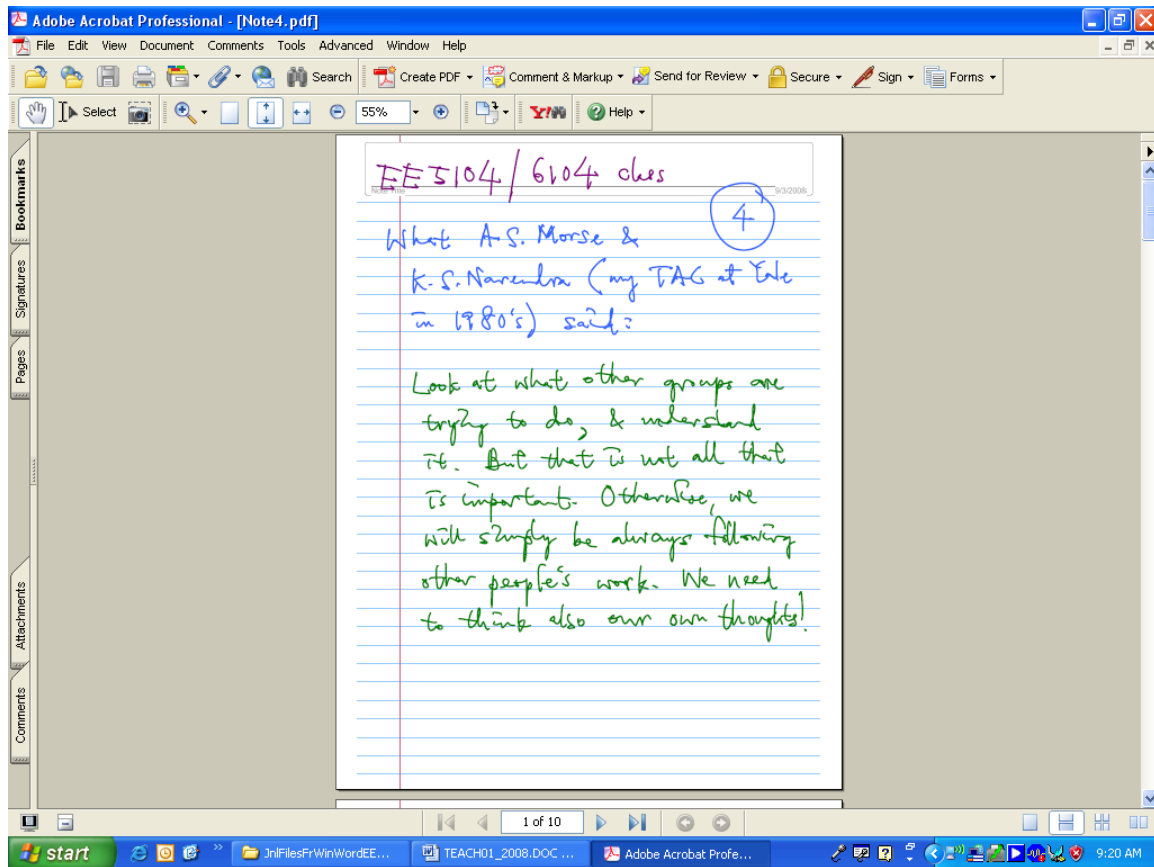 Adobe Acrobat Professional - [Note4.pdf]
File Edit View Document Comments Tools Advanced Window Help
Search Create PDF Comment & Markup Send for Review Secure Sign Forms
Select 55% Y! Help
Bookmarks
Signatures
Pages
Attachments
Comments
EE5104/6104 class
Note Title 9/3/2008
4
What A.S. Morse &
K.S. Narendra (my TAC at Yale
in 1980's) said:
Look at what other groups are
trying to do, & understand
it. But that is not all that
is important. Otherwise, we
will simply be always following
other people's work. We need
to think also our own thoughts!
1 of 10
start JnlFilesFrWinWordEE... TEACH01_2008.DOC ... Adobe Acrobat Profe... 9:20 AM